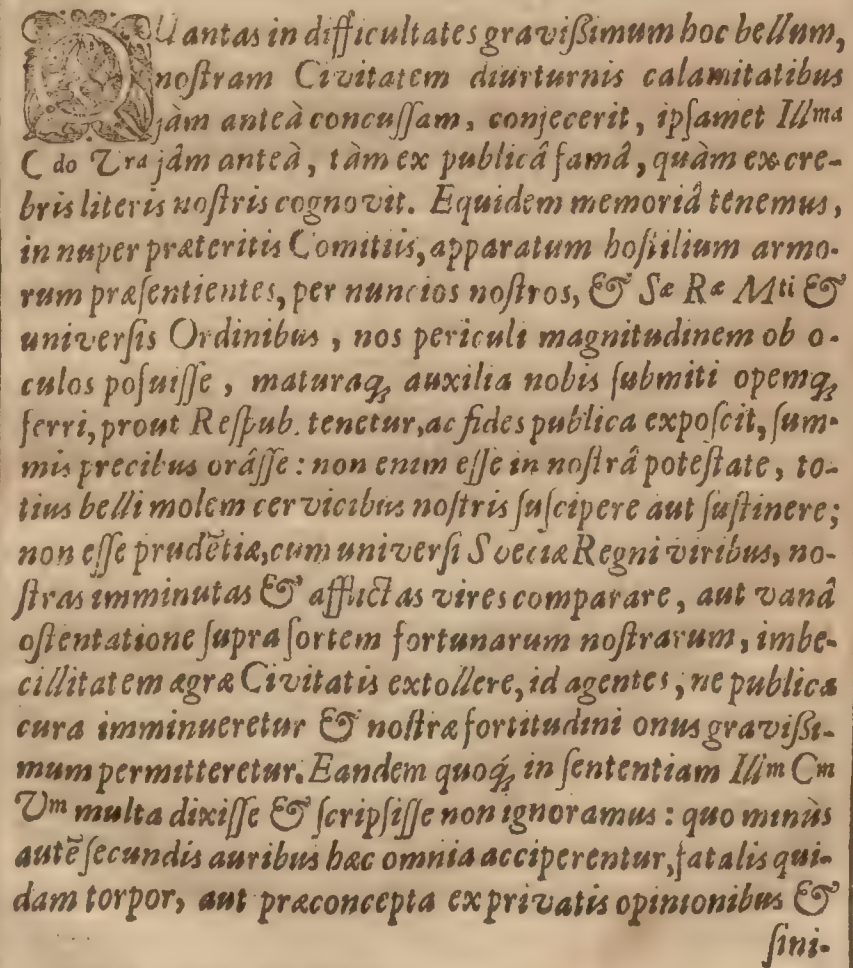 QUantas in difficultates gravißimum hoc bellum,
noſtram Civitatem diuturnis calamitatibus
jàm anteà concuſſam, conjecerit, ipſamet Illma
Cdo Vra jám anteà, tàm ex publicâ famâ, quàm ex cre-
bris literis noſtris cognovit. Equidem memoriâ tenemus,
in nuper præteritis Comitiis, apparatum hoſtilium armo-
rum præſentientes, per nuncios noſtros, & Sæ Ræ Mti &
univerſis Ordinibus, nos periculi magnitudinem ob o-
culos poſuiſſe, maturaq́; auxilia nobis ſubmiti opemq́;
ferri, prout Reſpub. tenetur, ac fides publica expoſcit, ſum-
mis precibus orâſſe: non enim eſſe in noſtrâ poteſtate, to-
tius belli molem cervicibus noſtris ſuſcipere aut ſuſtinere;
non eſſe prudẽtiæ, cum univerſi Sveciæ Regni viribus, no-
ſtras imminutas & afflictas vires comparare, aut vanâ
oſtentatione ſupra ſortem fortunarum noſtrarum, imbe-
cillitatem ægræ Civitatis extollere, id agentes, ne publica
cura imminueretur & noſtræ fortitudini onus gravißi-
mum permitteretur. Eandem quoq́; in ſententiam Illm Cm
Vm multa dixiſſe & ſcripſiſſe non ignoramus: quo minùs
autẽ ſecundis auribus hæc omnia acciperentur, fatalis qui-
dam torpor, aut præconcepta ex privatis opinionibus &
ſini-